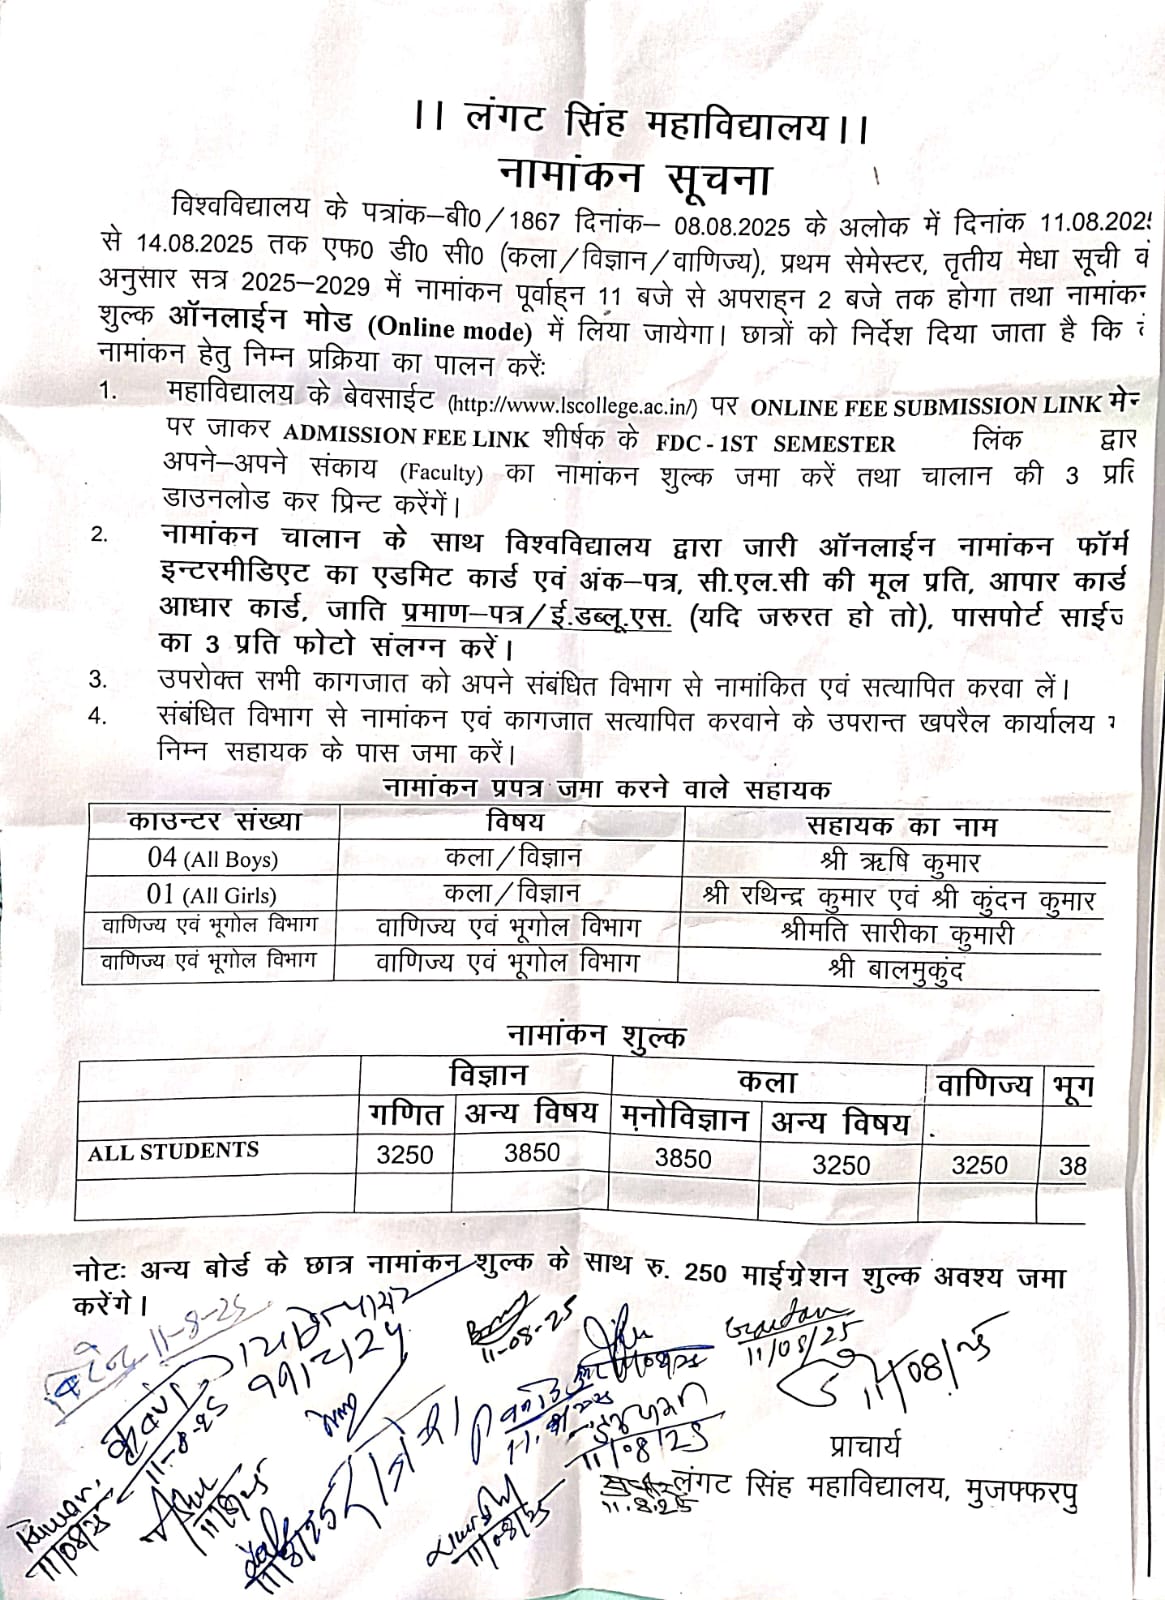 ।। लंगट सिंह महाविद्यालय।।
नामांकन सूचना
विश्वविद्यालय के पत्रांक–बी0/1867 दिनांक– 08.08.2025 के अलोक में दिनांक 11.08.202
से 14.08.2025 तक एफ0 डी0 सी0 (कला/विज्ञान/वाणिज्य), प्रथम सेमेस्टर, तृतीय मेधा सूची
अनुसार सत्र 2025–2029 में नामांकन पूर्वाह्न 11 बजे से अपराह्न 2 बजे तक होगा तथा नामांकन
शुल्क ऑनलाईन मोड (Online mode) में लिया जायेगा। छात्रों को निर्देश दिया जाता है कि
नामांकन हेतु निम्न प्रक्रिया का पालन करें:
1. महाविद्यालय के बेवसाईट (http://www.lscollege.ac.in/) पर ONLINE FEE SUBMISSION LINK मेन
पर जाकर ADMISSION FEE LINK शीर्षक के FDC - 1ST SEMESTER लिंक द्वार
अपने–अपने संकाय (Faculty) का नामांकन शुल्क जमा करें तथा चालान की 3 प्रति
डाउनलोड कर प्रिन्ट करेंगें।
2. नामांकन चालान के साथ विश्वविद्यालय द्वारा जारी ऑनलाईन नामांकन फॉर्म
इन्टरमीडिएट का एडमिट कार्ड एवं अंक–पत्र, सी.एल.सी की मूल प्रति, आपार कार्ड
आधार कार्ड, जाति प्रमाण–पत्र/ई.डब्लू.एस. (यदि जरुरत हो तो), पासपोर्ट साईज
का 3 प्रति फोटो संलग्न करें।
3. उपरोक्त सभी कागजात को अपने संबंधित विभाग से नामांकित एवं सत्यापित करवा लें।
4. संबंधित विभाग से नामांकन एवं कागजात सत्यापित करवाने के उपरान्त खपरैल कार्यालय
निम्न सहायक के पास जमा करें।
नामांकन प्रपत्र जमा करने वाले सहायक
काउन्टर संख्या विषय सहायक का नाम
04 (All Boys) कला/विज्ञान श्री ऋषि कुमार
01 (All Girls) कला/विज्ञान श्री रथिन्द्र कुमार एवं श्री कुंदन कुमार
वाणिज्य एवं भूगोल विभाग वाणिज्य एवं भूगोल विभाग श्रीमति सारीका कुमारी
वाणिज्य एवं भूगोल विभाग वाणिज्य एवं भूगोल विभाग श्री बालमुकुंद
नामांकन शुल्क
विज्ञान कला वाणिज्य भूग
गणित अन्य विषय मनोविज्ञान अन्य विषय
ALL STUDENTS 3250 3850 3850 3250 3250 38
नोट: अन्य बोर्ड के छात्र नामांकन शुल्क के साथ रु. 250 माईग्रेशन शुल्क अवश्य जमा
करेंगे।
11-8-25
11-08-25
11/08/25
11/08/25
11-8-25
11/08/25
प्राचार्य
लंगट सिंह महाविद्यालय, मुजफ्फरपु
11.8.25
Kumar
11/08/25
11/8/25
11/8/25
11/08/25